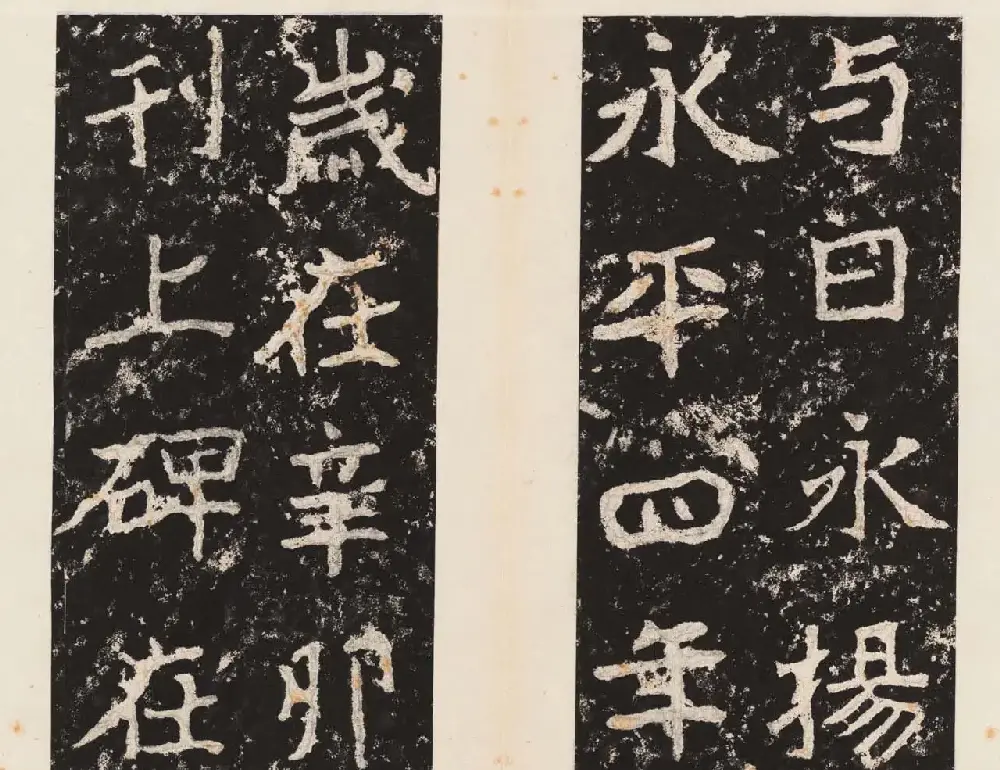 与日永揚
永平四年
歳在辛卯
刊上碑在